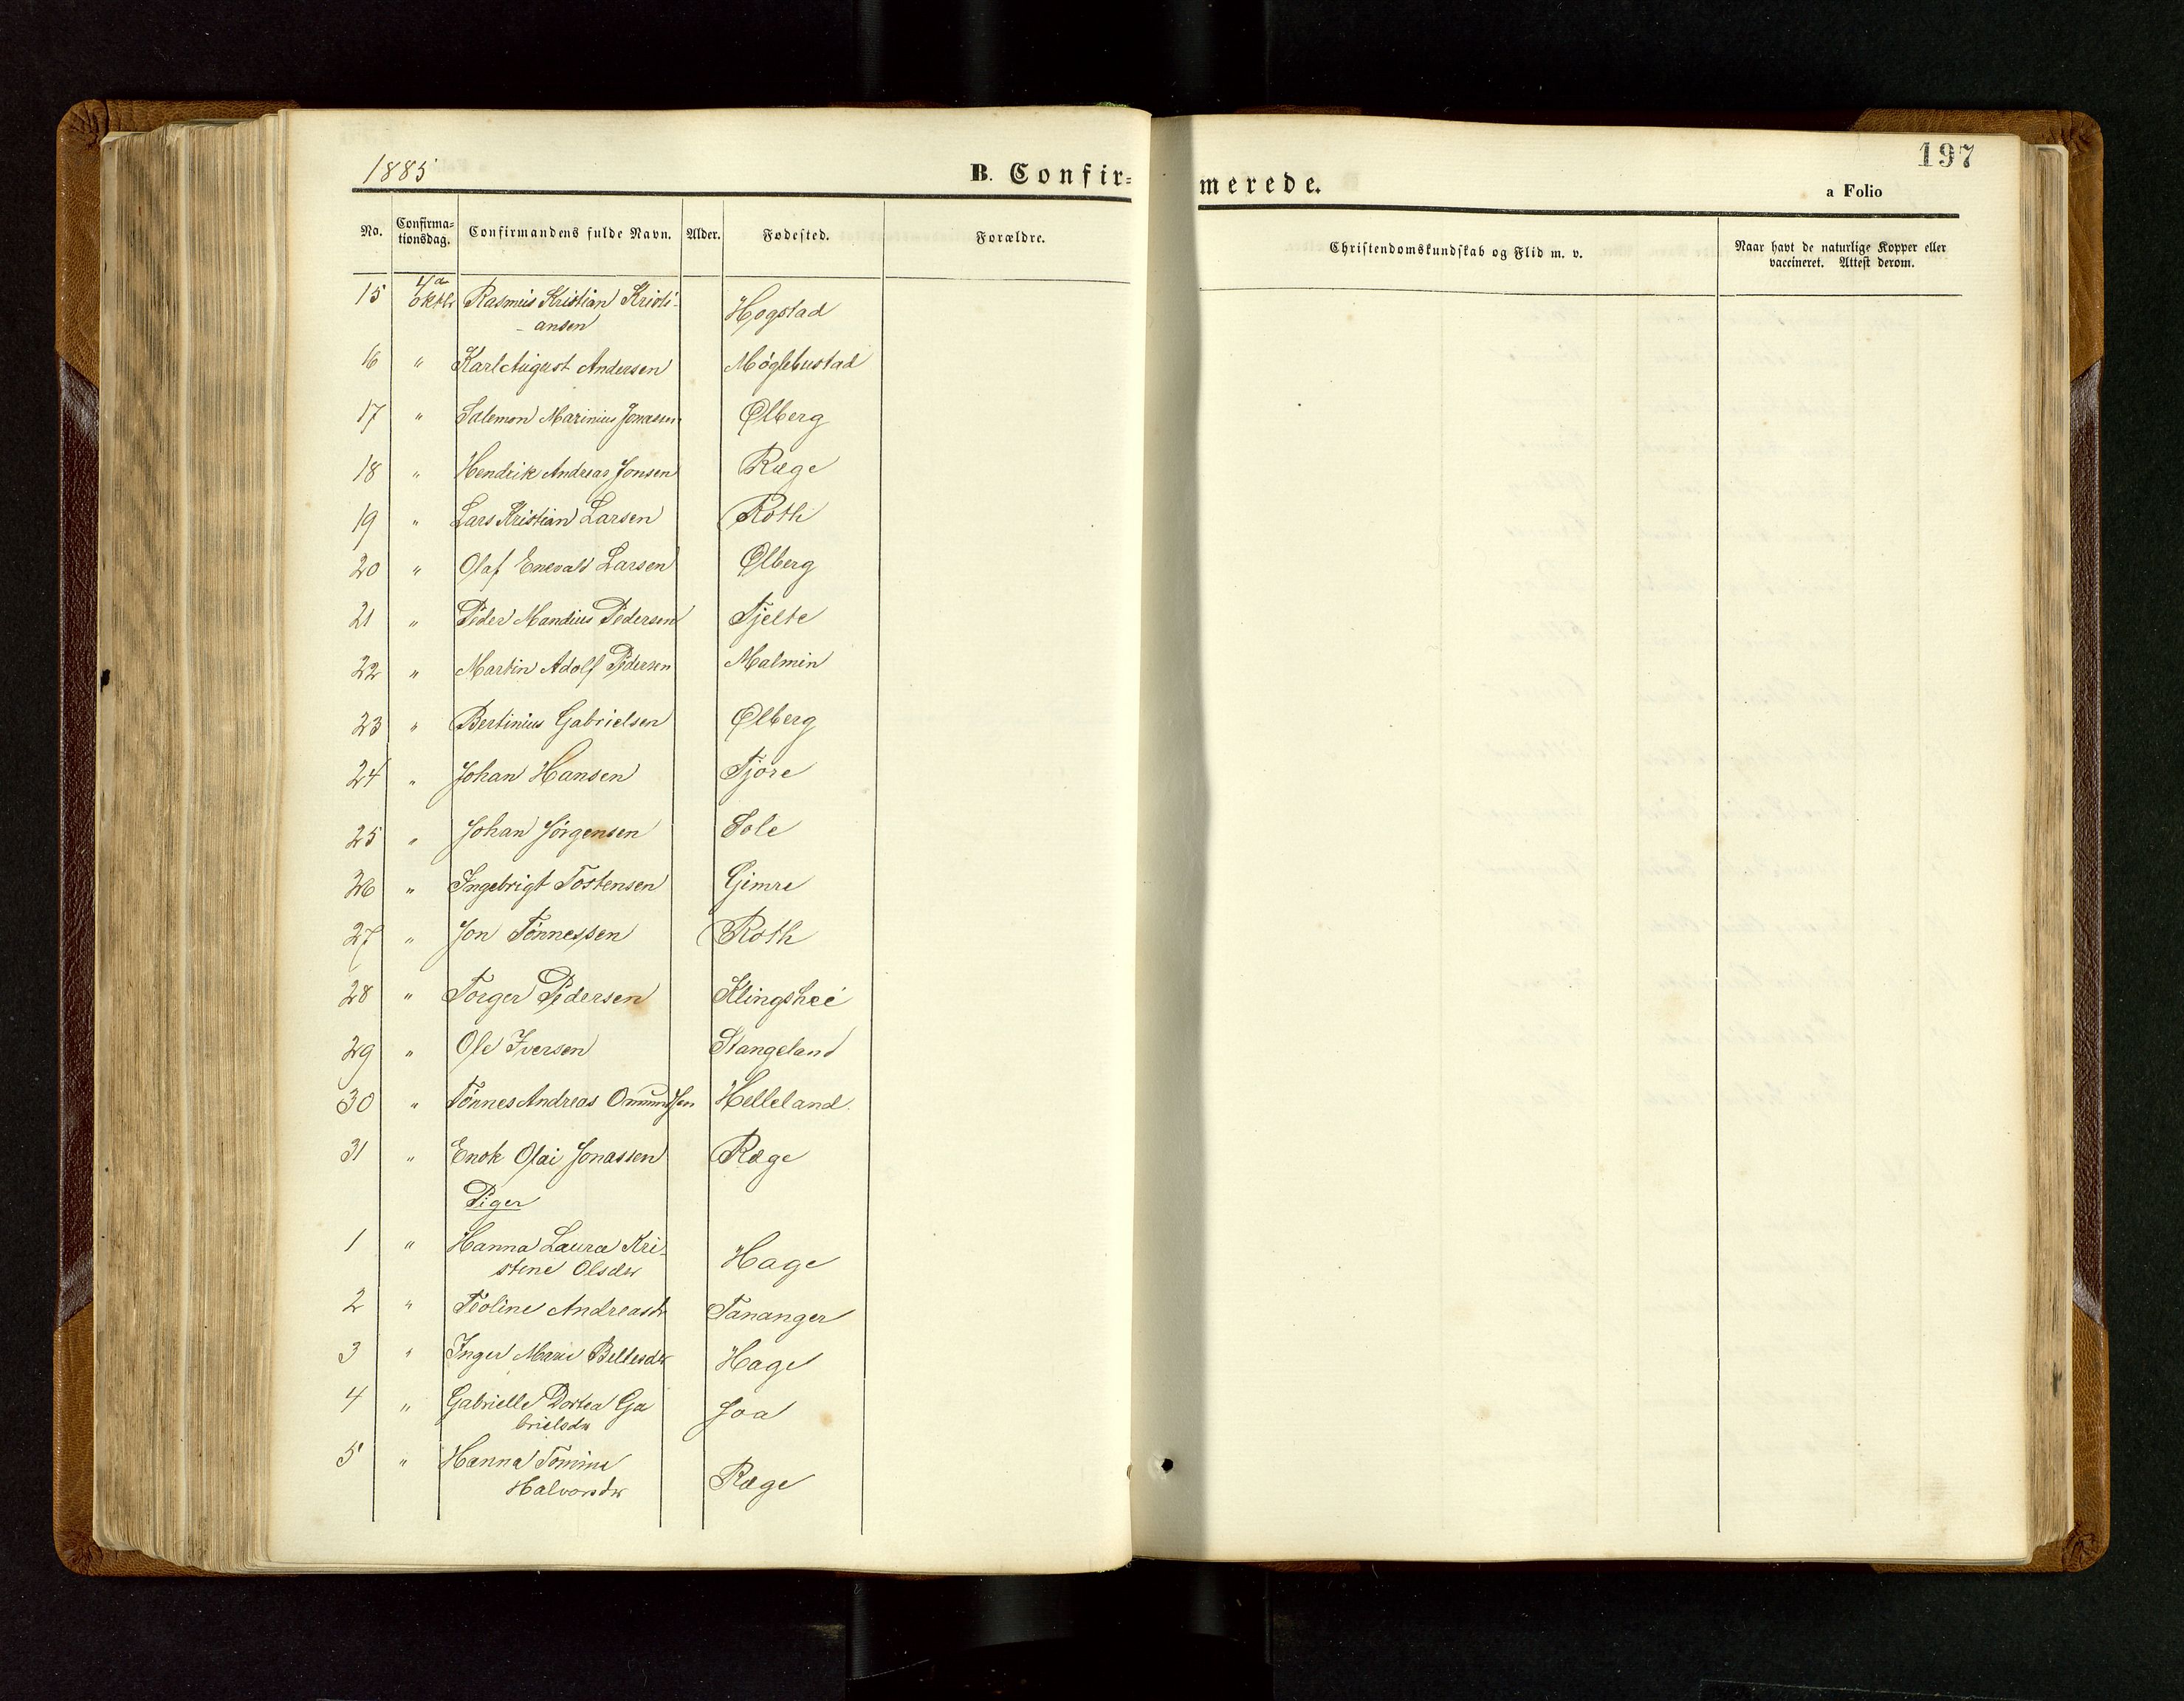 1885
B. Confir=
merede.
197
a Folio
No. Confirma= tionsdag. Confirmandens fulde Navn. Alder. Fødested. Forældre. Christendomskundskab og Flid m. v. Naar havt de naturlige Kopper eller vaccineret. Attest derom.
15 4/de Oktbr Rasmus Kristian Kristi- Hogstad
- ansen
16 " Karl August Andersen Møglebustad
17 " Salemon Marinius Jonassen Ølberg
18 " Hendrik Andreas Jonsen Ræge
19 " Lars Kristian Larsen Roth
20 " Olaf Enevald Larsen Ølberg
21 " Peder Mandius Pedersen Tjelte
22 " Martin Adolf Pedersen Malmin
23 " Bertinius Gabrielsen Ølberg
24 " Johan Hansen Tjore
25 " Johan Jørgensen Sole
26 " Ingebrigt Tostensen Gimre
27 " Jon Tønnessen Roth
28 " Torger Pedersen Klingsheé
29 " Ole Iversen Stangeland
30 " Tønnes Andreas Omundsen Helleland.
31 " Enok Olai Jonassen Ræge
Piger
1 " Hanna Laura Kri- Hage
stine Olsdtr
2 " Teoline Andreasdtr Tananger
3 " Inger Marie Bellesdtr Hage
4 " Gabrielle Dortea Ga Joa
brielsdtr
5 " Hanna Tomine Ræge
Halvorsdtr